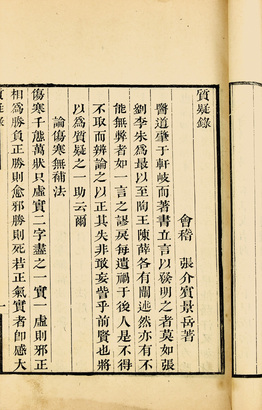 質疑錄
會稽 張介賓景岳著
醫道肇于軒岐而著書立言以發明之者莫如張
劉李朱為最以至陶王陳薛各有闡述然亦有不
能無弊者如一言之謬戾每遺禍于後人是不得
不取而辨論之以正其失非敢妄訾乎前賢也將
以為質疑之一助云爾
論傷寒無補法
傷寒千態萬狀只虛實二字盡之一實一虛則邪正
相為勝負正勝則愈邪勝則死若正氣實者即感大